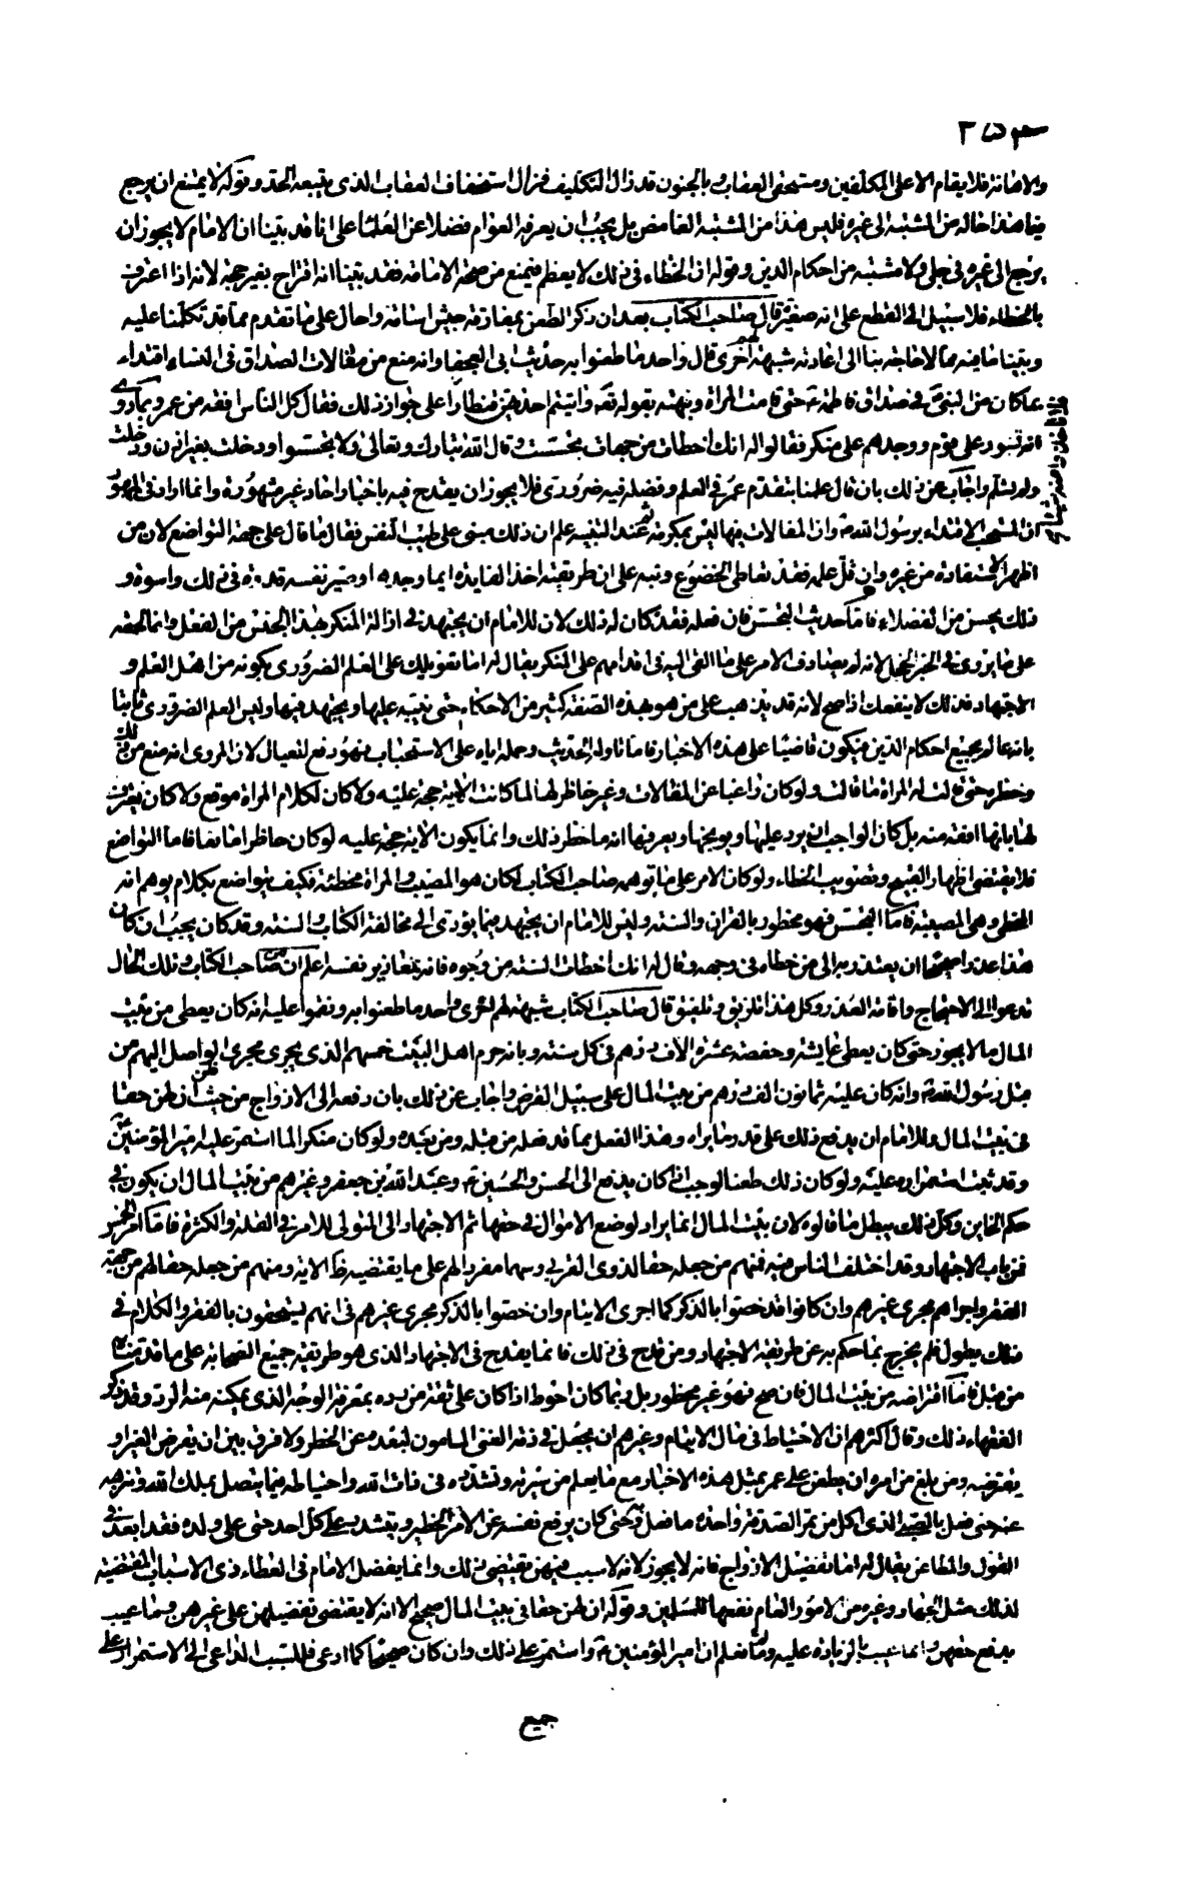 ٢٥٣
والاهانة فلا يقام الا على المكلفين ومستحقى العقاب وبالجنون قد زال التكليف فزال استحقاق العقاب الذى يتبعه الحد وقوله لا يمتنع ان يرجع
فيما هذا حاله من المشتبه الى غيره فليس هذا من المشتبه الغامض بل يجب ان يعرفه العوام فضلا عن العلماء على انا قد بينا ان الامام لا يجوز ان
يرجع الى غيره فى جلى ولا مشتبه من احكام الدين وقوله ان الخطاء فى ذلك لا يعظم فيمنع من صحة الامامة فقد بينا انه اقتراح بغير حجة لانه اذا اعترف
بالخطاء فلا سبيل الى القطع على انه صغيرة قال صاحب الكتاب بعد ان ذكر الطعن بمفارقة جيش اسامة واحال على ما تقدم مما قد تكلمنا عليه
وبينا ما فيه مما لا حاجة بنا الى اعادته شبهة لهم اخرى قال واحد ما طعنوا به حديث ابى العجفا وانه منع من مغالات الصداق فى النساء اقتداء
بما كان من النبى فى صداق فاطمة ع حتى قامت المراة ونبهته بقوله تعه واتيتم احديهن قنطارا على جواز ذلك فقال كل الناس افقه من عمر وبما روى
انه تسور على قوم ووجدهم على منكر فقالوا له انك اخطات من جهات تجسست وقال الله تبارك وتعالى ولا تجسسوا ودخلت بغير اذن ودخلت
ولم تسلم واجاب عن ذلك بان قال علمنا بتقدم عمر فى العلم وفضله فيه ضرورى فلا يجوز ان يقدح فيه باخبار احاد غير مشهورة وانما اراد فى المهور
ان المستحب الاقتداء برسول الله وان المغالات فيها ليس بمكرمة ثم عند التنبيه علم ان ذلك مبنى على طيب النفس فقال ما قال على جهة التواضع لان من
اظهر الاستفادة من غيره وان قل علمه فقد تعاطى الخضوع ونبه على ان طريقته اخذ الفايدة اينما وجده او صير نفسه قدوة فى ذلك واسوة و
ذلك يحسن من الفضلاء فاما حديث التجسس فان فعله فقد كان له ذلك لان للامام ان يجتهد فى ازالة المنكر بهذا الجنس من الفعل وانما لحقه
على ما يروى فى الخبر الخجل لانه لم يصادف الامر على ما القى اليه فى اقدامهم على المنكر يقال له اما تعويلك على العلم الضرورى بكونه من اهل العلم و
الاجتهاد فذلك لا ينفعك اذا صح لانه قد يذهب على من هو بهذه الصفة كثير من الاحكام حتى ينبه عليها ويجتهد فيها وليس العلم الضرورى ثابتا
بانه عالم بجميع احكام الدين فيكون قاضيا على هذه الاخبار فاما تاوله الحديث وحمله اياه على الاستحباب فهو دفع للعيان لان المروى انه منع من ذلك
وحظره حتى قالت له المراة ما قالت ولو كان راغبا عن المغالات وغير حاظر لها لما كانت الاية حجة عليه ولا كان لكلام المراة موقع ولا كان يعترف
لها بانها افقه منه بل كان الواجب ان يرد عليها ويوبخها ويعرفها انه ما حظر ذلك وانما يكون الاية حجة عليه لو كان حاظرا مانعا فاما التواضع
فلا يقتضى اظهار القبيح وتصويب الخطاء ولو كان الامر على ما توهمه صاحب الكتاب لكان هو المصيب والمراة مخطئة فكيف يتواضع بكلام يوهم انه
المخطى وهى المصيبة فاما التجسس فهو محظور بالقران والسنة وليس للامام ان يجتهد فيما يؤدى الى مخالفة الكتاب والسنة وقد كان يجب ان كان
هذا عذرا صحيحا ان يعتذر به الى من خطاه فى وجهه وقال له انك اخطات السنة من وجوه فانه بمعاذير نفسه اعلم من صاحب الكتاب وتلك الحال
تدعوا الى الاحتجاج واقامة العذر وكل هذا تلزيق وتلفيق قال صاحب الكتاب شبهة لهم اخرى واحد ما طعنوا به ونقموا عليه انه كان يعطى من بيت
المال ما لا يجوز حتى كان يعطى عايشة وحفصة عشرة الاف درهم فى كل سنة وبانه حرم اهل البيت خمسهم الذى يجرى مجرى الواصل اليهم من
قبل رسول الله وانه كان عليه ثمانون الف درهم من بيت المال على سبيل القرض واجاب عن ذلك بان دفعه الى الازواج من حيث ان لهن حقا
فى بيت المال وللامام ان يدفع ذلك على قدر ما يراه وهذا الفعل مما قد فعله من قبله ومن بعده ولو كان منكرا لما استمر عليه امير المؤمنين
وقد ثبت استمراره عليه ولو كان ذلك طعنا لوجب اذا كان يدفع الى الحسن والحسين ع وعبد الله بن جعفر وغيرهم من بيت المال ان يكون فى
حكم الخاين وكل ذلك يبطل ما قالوه لان بيت المال انما يراد لوضع الاموال فى حقها ثم الاجتهاد الى المتولى للامر فى القلة والكثرة فاما امر الخمس
فمن باب الاجتهاد وقد اختلف الناس فيه فمنهم من جعله حقا لذوى القربى وسهما مفردا لهم على ما يقتضيه ظ الاية ومنهم من جعله حقا لهم من جهة
الفقر واجراهم مجرى غيرهم وان كانوا قد خصوا بالذكر كما اجرى الايتام وان خصوا بالذكر مجرى غيرهم فى انهم يستحقون بالفقر والكلام فى
ذلك يطول فلم يخرج بما حكم به عن طريقة الاجتهاد ومن قدح فى ذلك فانما يقدح فى الاجتهاد الذى هو طريقة جميع الصحابة على ما قد بيناه
من قبل فاما اقتراضه من بيت المال فان صح فهو غير محظور بل ربما كان احوط اذا كان على ثقة من رده بمعرفة الوجه الذى يمكنه منه الرد وقد ذكر
الفقهاء ذلك وقال اكثرهم ان الاحتياط فى مال الايتام وغيرهم ان يجعل فى ذمة الغنى المامون لبعده عن الخطر ولا فرق بين ان يقرض الغير او
يقترضه ومن بلغ من امره ان يطعن على عمر بمثل هذه الاخبار مع ما يعلم من سيرته وتشدده فى ذات الله واحتياطه فيما يتصل بملك الله وتنزهه
عنه حتى فعل بالصبى الذى اكل من تمر الصدقة واحدة ما فعل وحتى كان يرفع نفسه عن الامر الحقير ويتشدد على كل احد حتى على ولده فقد ابعد فى
القول والمطاعن يقال له اما تفضيل الازواج فانه لا يجوز لانه لا سبب فيهن يقتضى ذلك وانما يفضل الامام فى العطاء ذى الاسباب المقتضية
لذلك مثل الجهاد وغيره من الامور العام نفعها للمسلمين وقوله ان لهن حقا فى بيت المال صحيح الا انه لا يقتضى تفضيلهن على غيرهن وما عيب
بدفع حقهن وانما عيب بالزيادة عليه وما نعلم ان امير المؤمنين ع واستمر على ذلك وان كان صحيحا كما ادعى فللسبب الداعى الى الاستمرار على
جميع